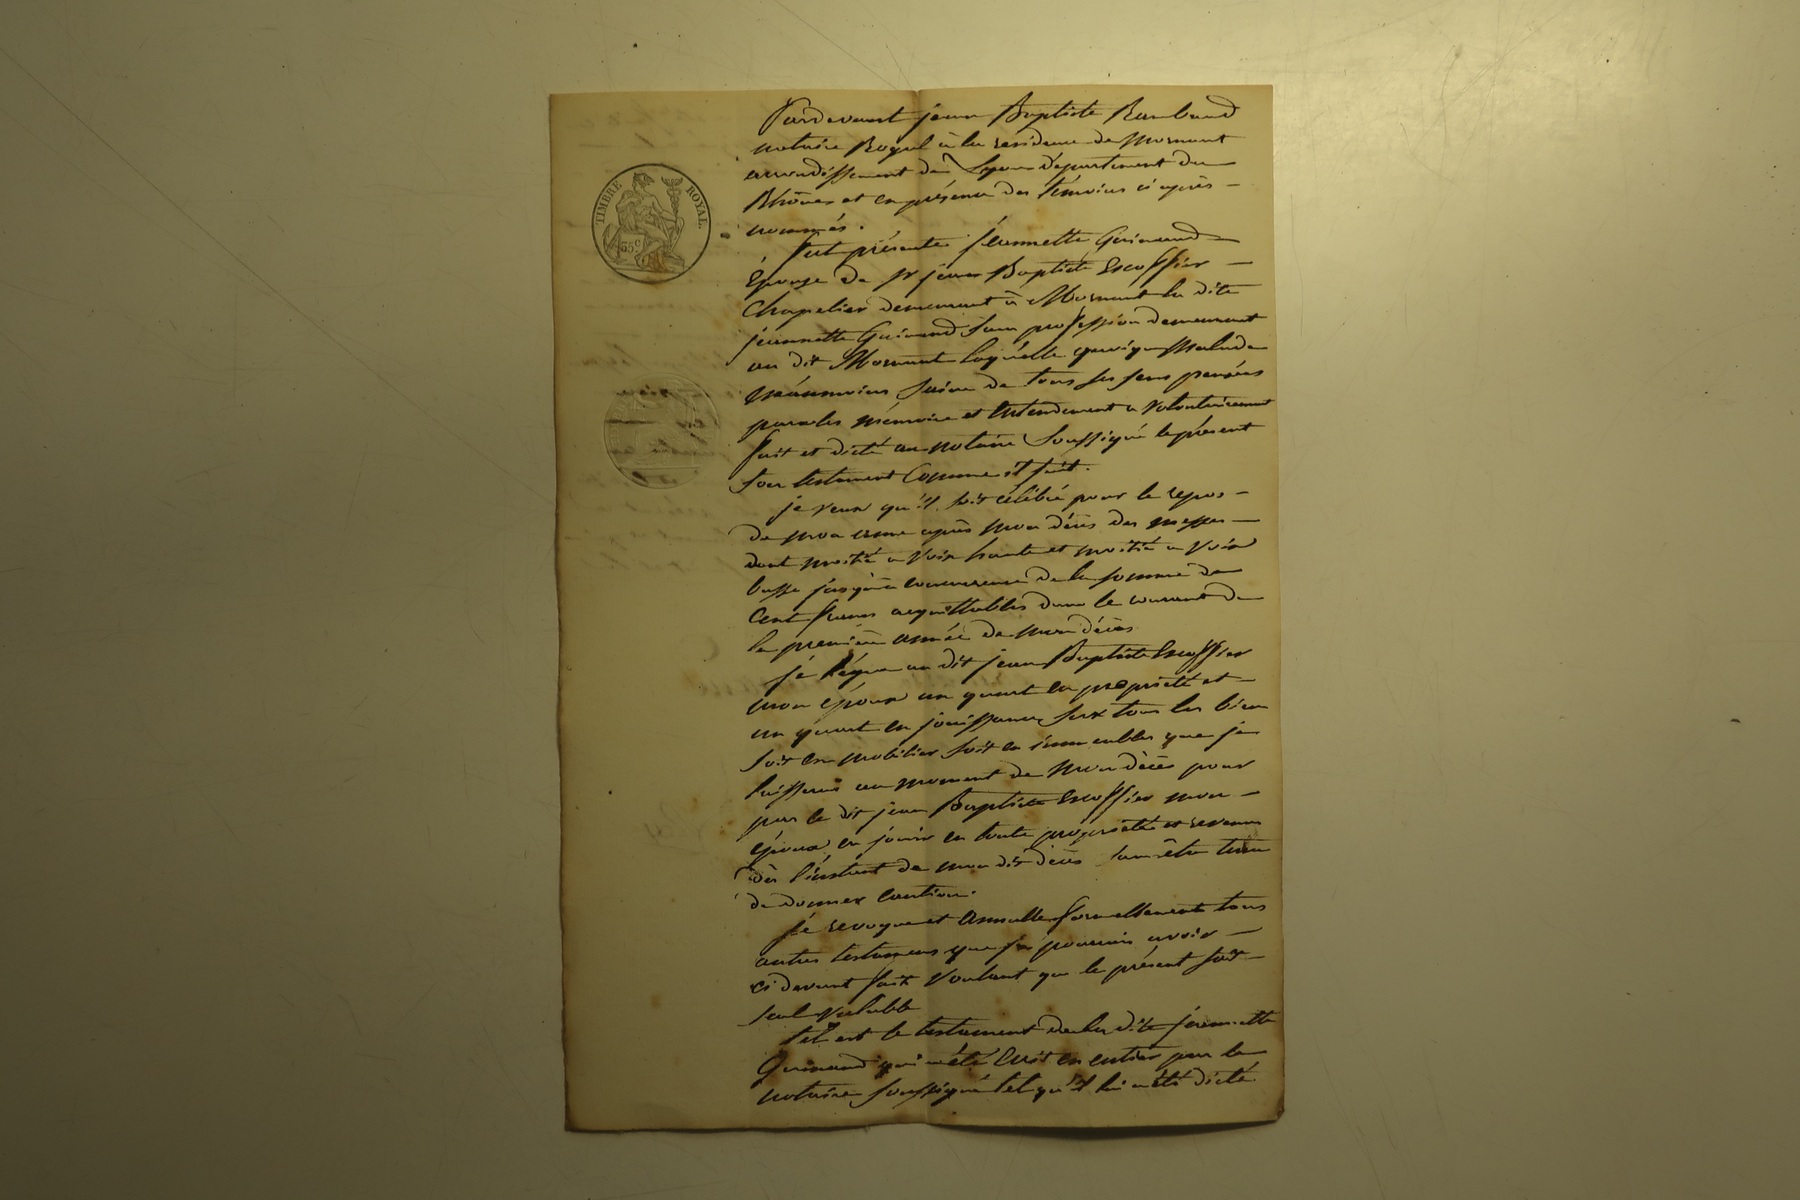 TIMBRE ROYAL
35 c
Pardevant jean Baptiste Rambaud
notaire Royal à la residence de Mornant
arrondissement de Lyon département du
Rhône et en présence des témoins ci après
nommés.
Fut présente Jeannette Guinand
Épouse de sr jean Baptiste Escoffier
Chapelier demeurant à Mornant la dite
jeannette Guinand sans profession demeurant
au dit Mornant laquelle quoique Malade
néanmoins saine de tous ses sens pensées
paroles mémoire et Entendement a volontairement
fait et dicté au notaire soussigné le présent
son testament Comme il suit.
je veux qu'il soit célébré pour le repos
de mon ame après mon décès des messes
dont moitié a voix haute et moitié a voix
basse jusqu'à concurrence de la somme de
Cent francs acquittables dans le courant de
la première année de mon décès
je légue au dit jean Baptiste Escoffier
mon époux un quart en propriété et
un quart en jouissance sur tous les biens
soit en mobilier soit en immeubles que je
laisserai au moment de mon décès pour
par le dit jean Baptiste Escoffier mon
époux en jouir en toute propriété et revenu
dès l'instant de mon dit décès sans être tenu
de donner caution.
je revoque et annulle formellement tous
autres testamens que je pourrais avoir
ci devant fait voulant que le présent soit
seul valable
tel est le testament de la dite jeannette
Guinand qui a été Ecrit en entier par le
notaire soussigné tel qu'il lui a été dicté